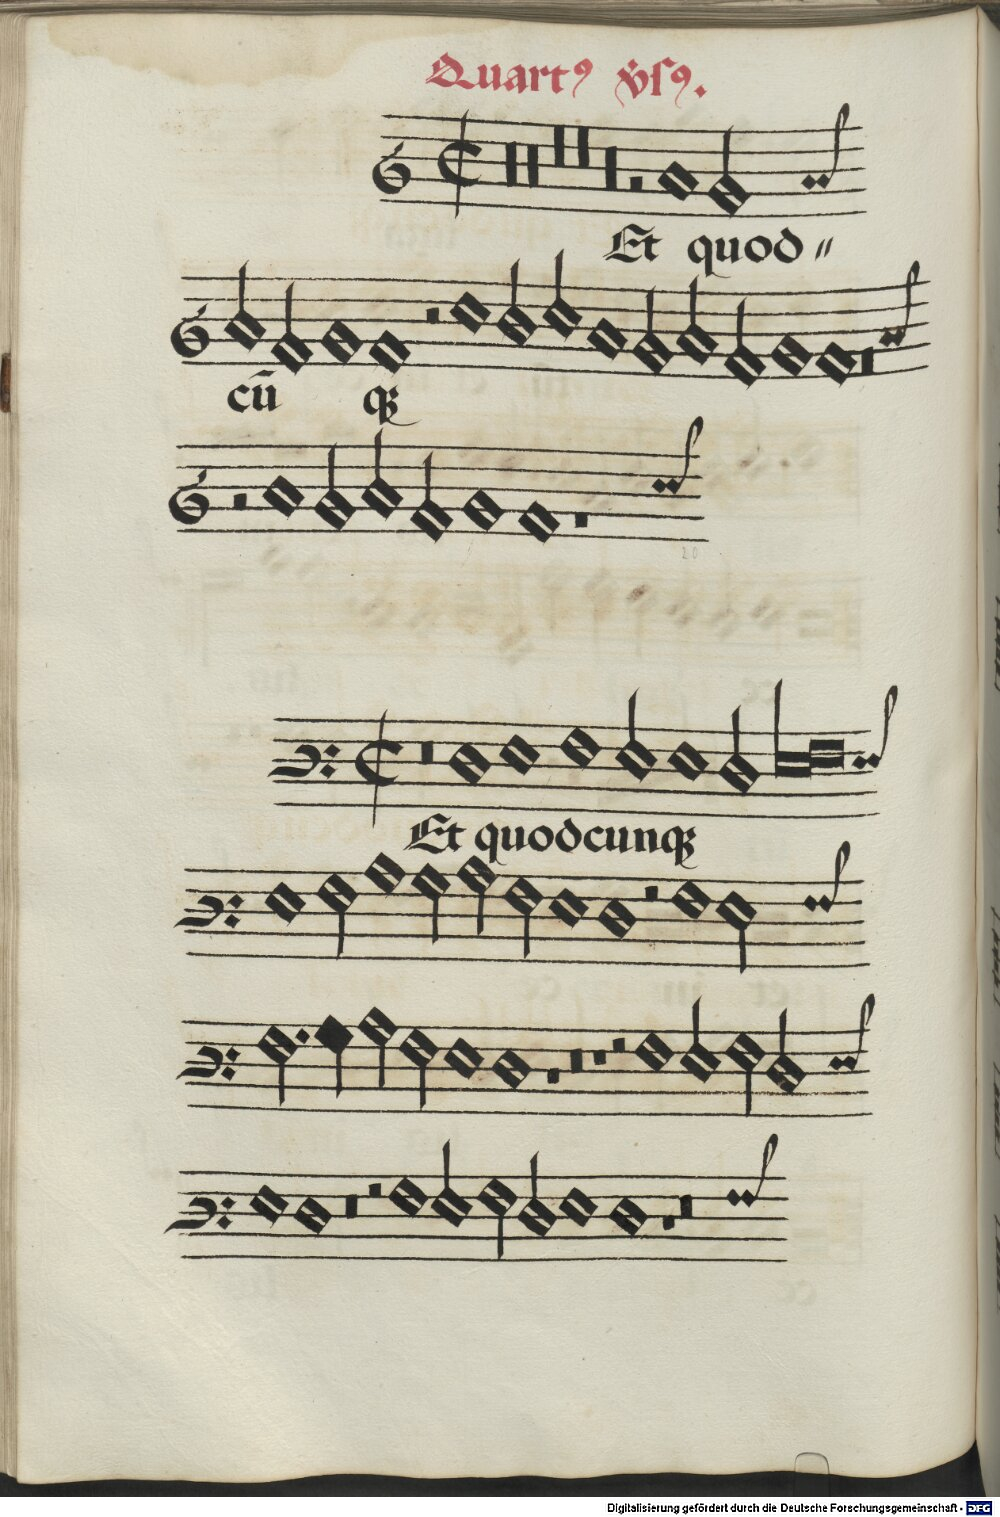 Quartꝰ v̉ſꝰ.
Et quod〃
cū qꝫ
20
Et quodcunqꝫ
Digitalisierung gefördert durch die Deutsche Forschungsgemeinschaft - DFG